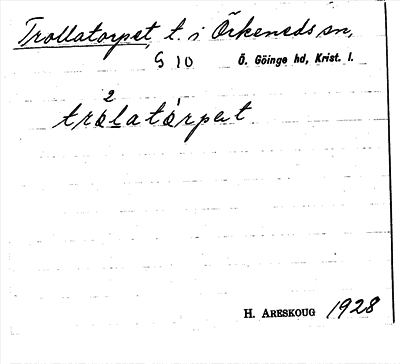 Trollatorpet, t. i Örkeneds sn,
S 10 Ö. Göinge hd, Krist. l.
2
trolatòrpet
H. ARESKOUG 1928